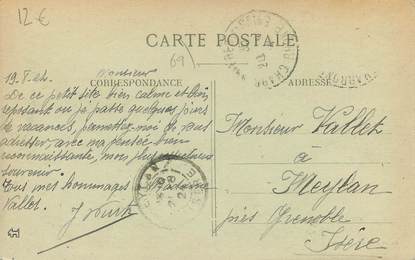 12€
69)
CARTE POSTALE
CORRESPONDANCE
ADRESSE
Monsieur
De ce petit site bien calme et bien
reposant où je passe quelques jours
de vacances, permettez-moi de vous
adresser, avec ma pensée bien
reconnaissante, mon plus
souvenir.
Tous mes hommages à Madame
Vallet.
Monsieur Vallet
à
Meylan
près Grenoble
Isère